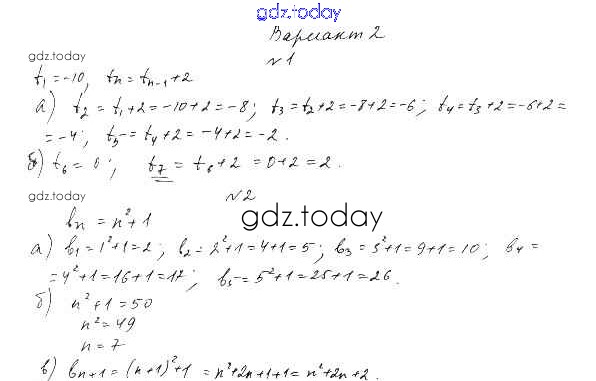 gdz.today
Вариант 2
N1
gdz.today
t₁=-10, tₙ=tₙ₋₁+2
а) t₂=t₁+2=-10+2=-8; t₃=t₂+2=-8+2=-6; t₄=t₃+2=-6+2=
=-4; t₅=t₄+2=-4+2=-2.
б) t₆=0; t₇=t₆+2=0+2=2.
gdz.today
N2
bₙ=n²+1
gdz.today
а) b₁=1²+1=2; b₂=2²+1=4+1=5; b₃=3²+1=9+1=10; b₄=
=4²+1=16+1=17; b₅=5²+1=25+1=26.
б) n²+1=50
n²=49
n=7
в) bₙ₊₁=(n+1)²+1=n²+2n+1+1=n²+2n+2.